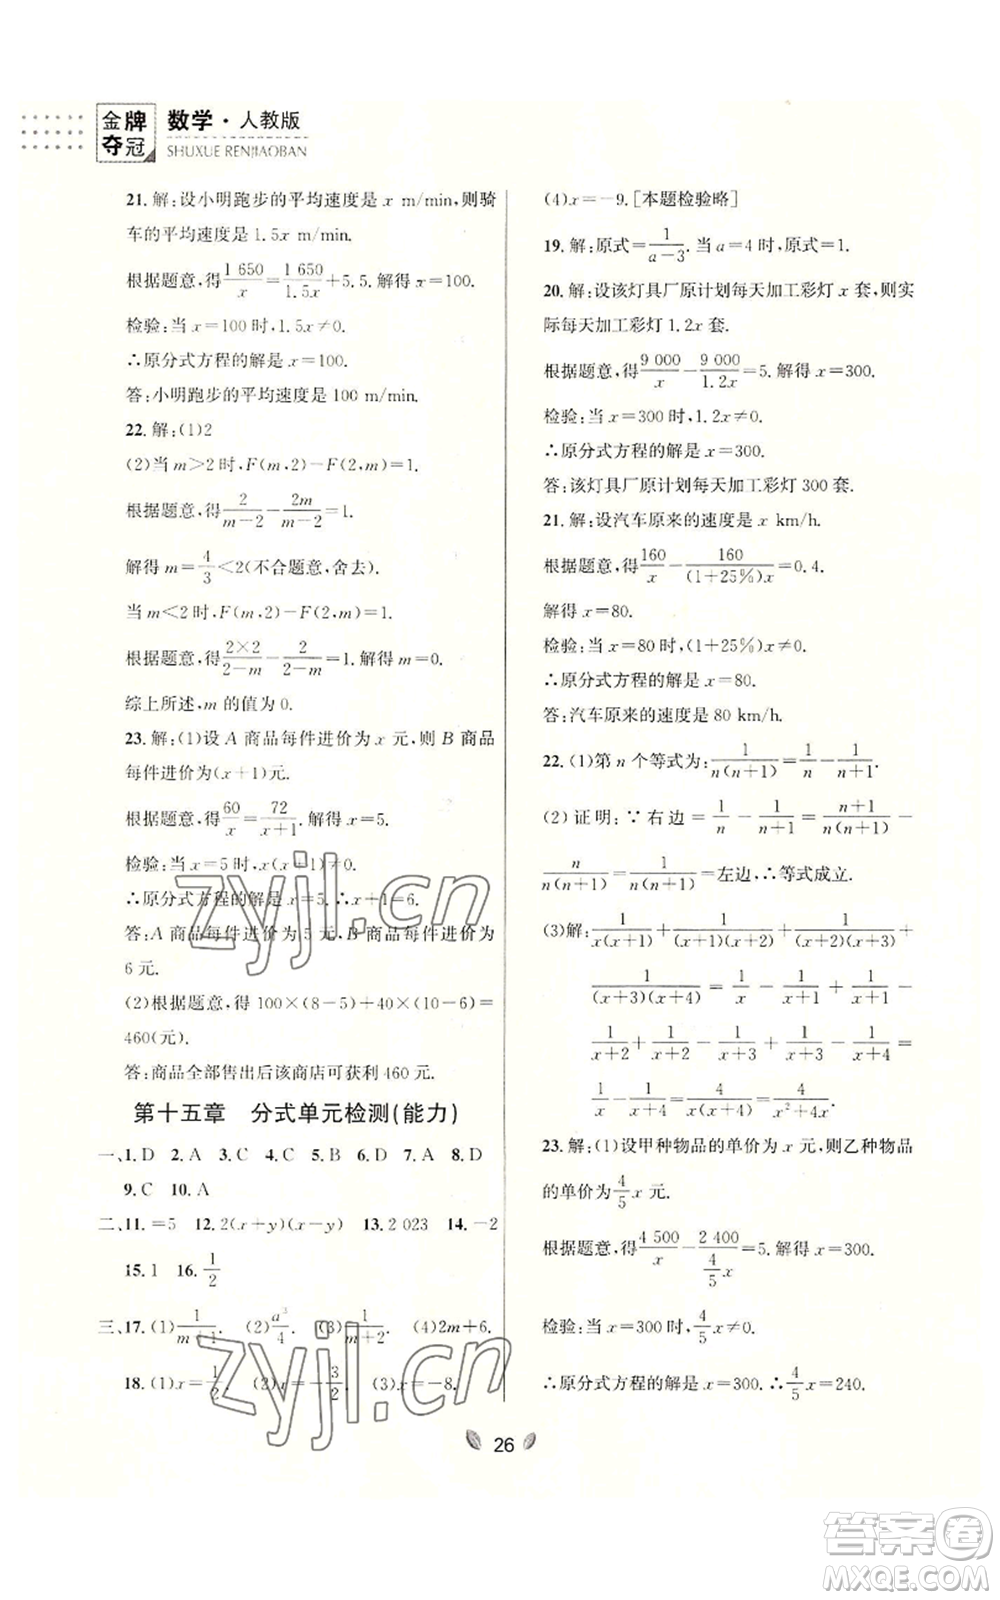 金牌
夺冠
数学·人教版
SHUXUE RENJIAOBAN
21. 解:设小明跑步的平均速度是 x m/min,则骑
车的平均速度是 1.5x m/min.
根据题意,得 1 650/x = 1 650/1.5x + 5.5. 解得 x=100.
检验:当 x=100 时,1.5x≠0.
∴原分式方程的解是 x=100.
答:小明跑步的平均速度是 100 m/min.
22. 解:(1)2
(2)当 m>2 时,F(m,2)-F(2,m)=1.
根据题意,得 2/(m-2) - 2m/(m-2) =1.
解得 m= 4/3 <2(不合题意,舍去).
当 m<2 时,F(m,2)-F(2,m)=1.
根据题意,得 (2×2)/(2-m) - 2/(2-m) =1. 解得 m=0.
综上所述,m 的值为 0.
23. 解:(1)设 A 商品每件进价为 x 元,则 B 商品
每件进价为(x+1)元.
根据题意,得 60/x = 72/(x+1). 解得 x=5.
检验:当 x=5 时,x(x+1)≠0.
∴原分式方程的解是 x=5. ∴x+1=6.
答:A 商品每件进价为 5 元,B 商品每件进价为
6 元.
(2)根据题意,得 100×(8-5)+40×(10-6)=
460(元).
答:商品全部售出后该商店可获利 460 元.
第十五章 分式单元检测(能力)
一、1. D 2. A 3. C 4. C 5. B 6. D 7. A 8. D
9. C 10. A
二、11. =5 12. 2(x+y)(x-y) 13. 2 023 14. -2
15. 1 16. 1/2
三、17. (1) 1/(m+1). (2) a³/4. (3) 1/(m+2). (4)2m+6.
18. (1)x= 1/2. (2)x=- 3/2. (3)x=-8.
(4)x=-9. [本题检验略]
19. 解:原式= 1/(a-3). 当 a=4 时,原式=1.
20. 解:设该灯具厂原计划每天加工彩灯 x 套,则实
际每天加工彩灯 1.2x 套.
根据题意,得 9 000/x - 9 000/1.2x =5. 解得 x=300.
检验:当 x=300 时,1.2x≠0.
∴原分式方程的解是 x=300.
答:该灯具厂原计划每天加工彩灯 300 套.
21. 解:设汽车原来的速度是 x km/h.
根据题意,得 160/x - 160/(1+25%)x =0.4.
解得 x=80.
检验:当 x=80 时,(1+25%)x≠0.
∴原分式方程的解是 x=80.
答:汽车原来的速度是 80 km/h.
22. (1)第 n 个等式为: 1/n(n+1) = 1/n - 1/(n+1).
(2)证明:∵右边= 1/n - 1/(n+1) = (n+1)/n(n+1) -
n/n(n+1) = 1/n(n+1) =左边,∴等式成立.
(3)解: 1/x(x+1) + 1/(x+1)(x+2) + 1/(x+2)(x+3) +
1/(x+3)(x+4) = 1/x - 1/(x+1) + 1/(x+1) -
1/(x+2) + 1/(x+2) - 1/(x+3) + 1/(x+3) - 1/(x+4) =
1/x - 1/(x+4) = 4/(x²+4x).
23. 解:(1)设甲种物品的单价为 x 元,则乙种物品
的单价为 4/5 x 元.
根据题意,得 4 500/x - 2 400/(4/5 x) =5. 解得 x=300.
检验:当 x=300 时, 4/5 x≠0.
∴原分式方程的解是 x=300. ∴ 4/5 x=240.
26
zyjl.cn
zyjl.cn
答案卷
MXQE.COM